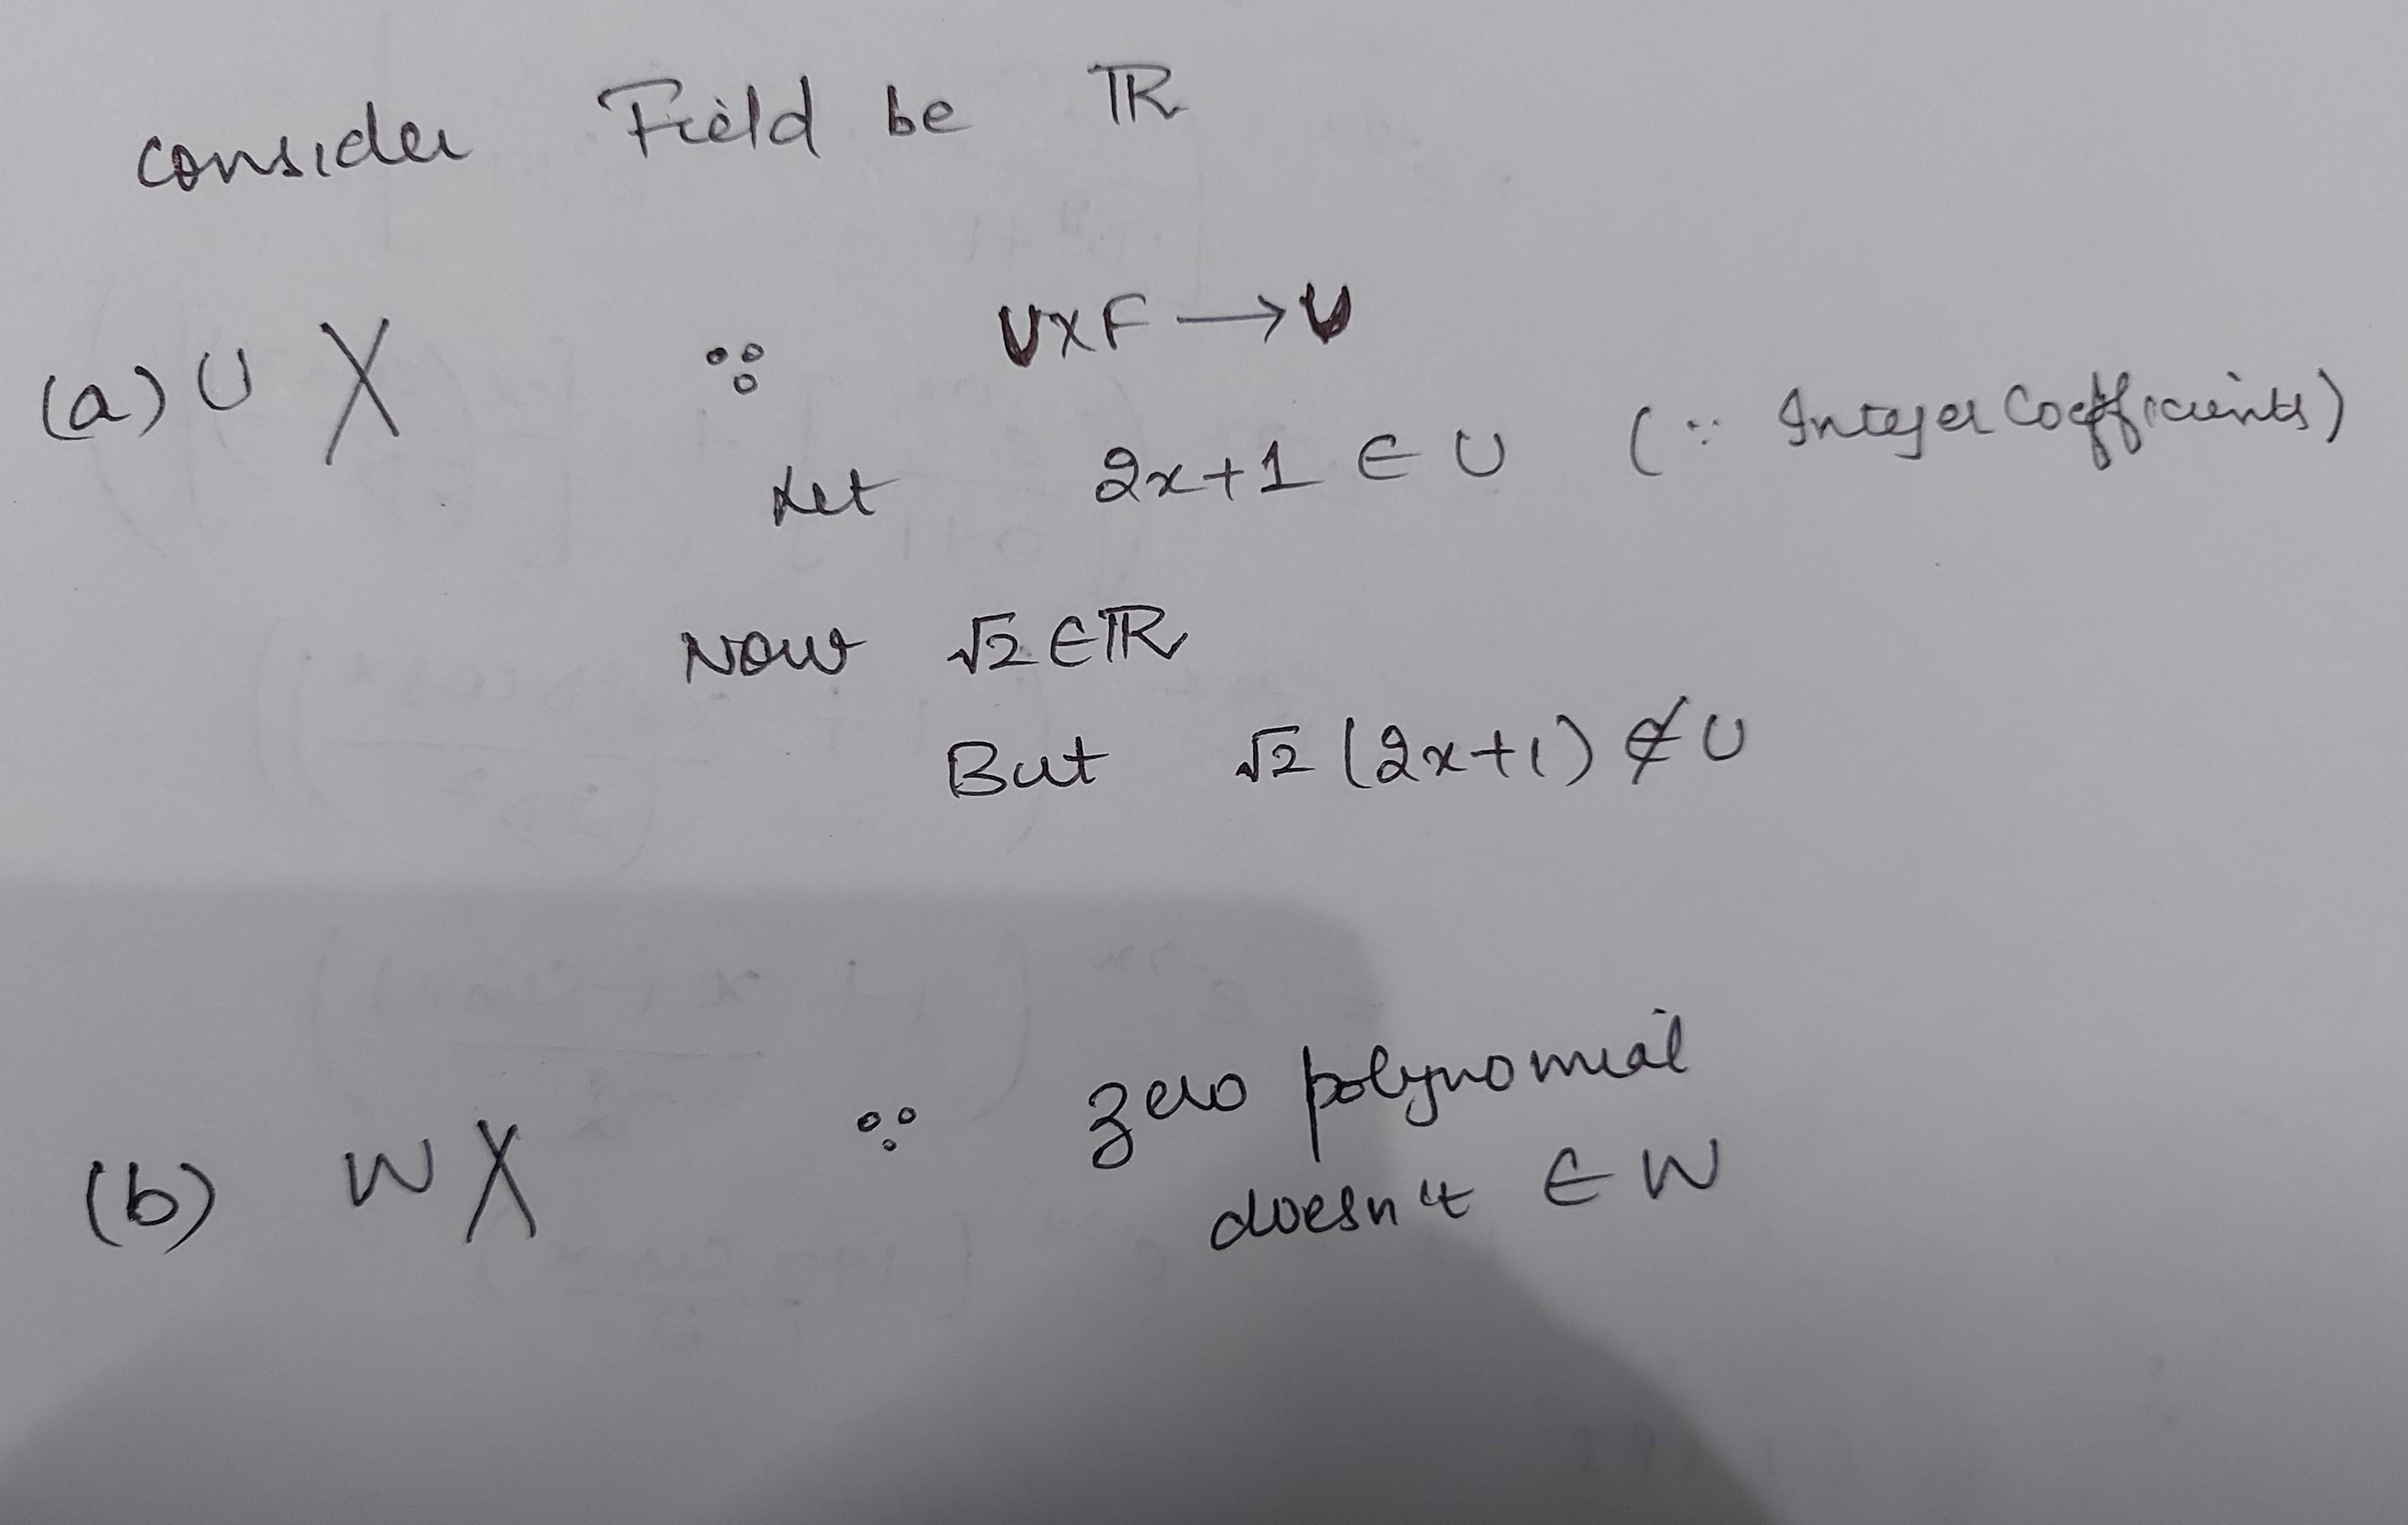 consider Field be ℝ
(a) U X ∵ U×F → U
Let 2x+1 ∈ U (∵ Integer Coefficients)
Now √2 ∈ ℝ
But √2 (2x+1) ∉ U
(b) W X ∵ zero polynomial
doesn't ∈ W